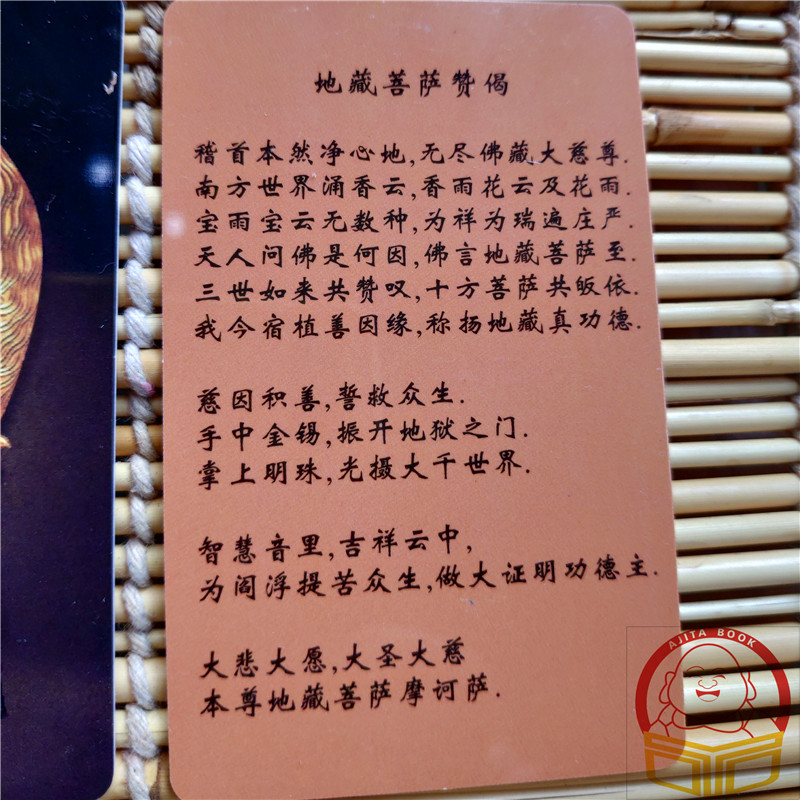 地藏菩萨赞偈
稽首本然净心地,无尽佛藏大慈尊.
南方世界涌香云,香雨花云及花雨.
宝雨宝云无数种,为祥为瑞遍庄严.
天人问佛是何因,佛言地藏菩萨至.
三世如来共赞叹,十方菩萨共皈依.
我今宿植善因缘,称扬地藏真功德.
慈因积善,誓救众生.
手中金锡,振开地狱之门.
掌上明珠,光摄大千世界.
智慧音里,吉祥云中,
为阎浮提苦众生,做大证明功德主.
大悲大愿,大圣大慈
本尊地藏菩萨摩诃萨.
AJITA BOOK